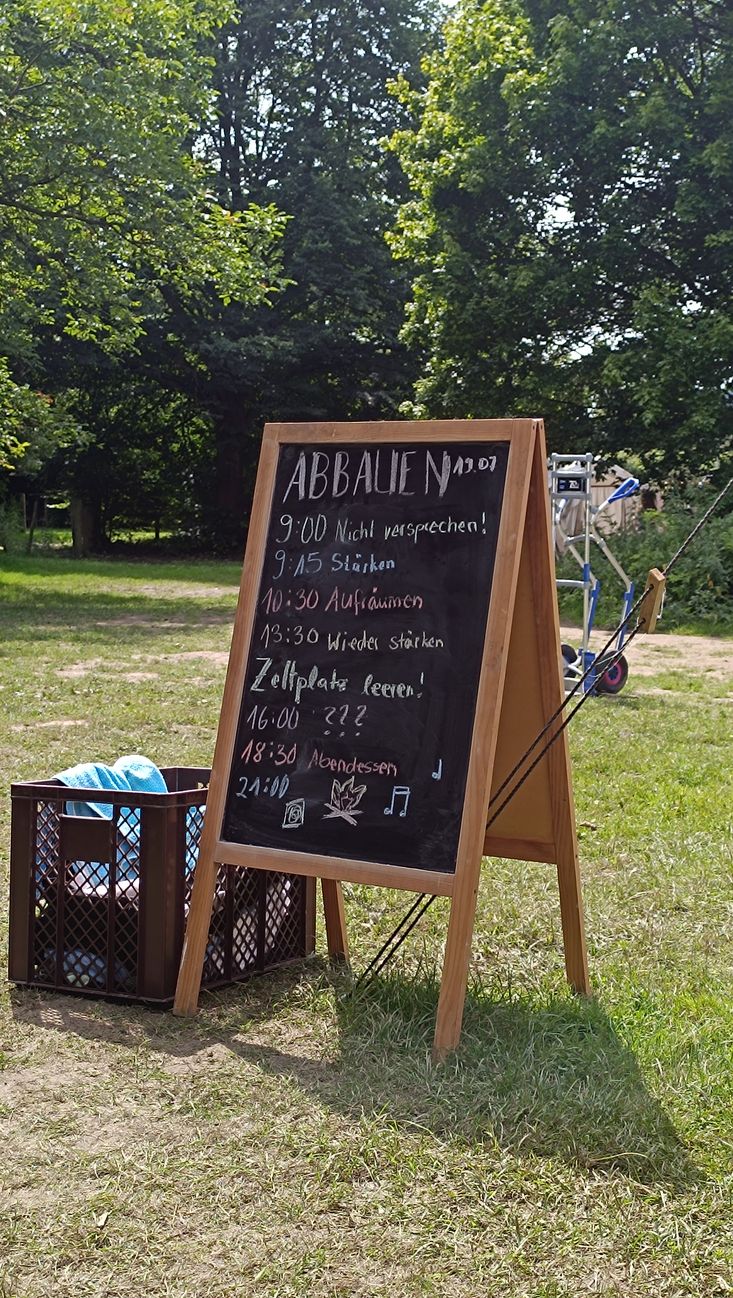 ABBAUEN 19.07
9:00 Nicht versprechen!
9:15 Stärken
10:30 Aufräumen
13:30 Wieder stärken
Zeltplatz leeren!
16:00 ???
18:30 Abendessen
21:00